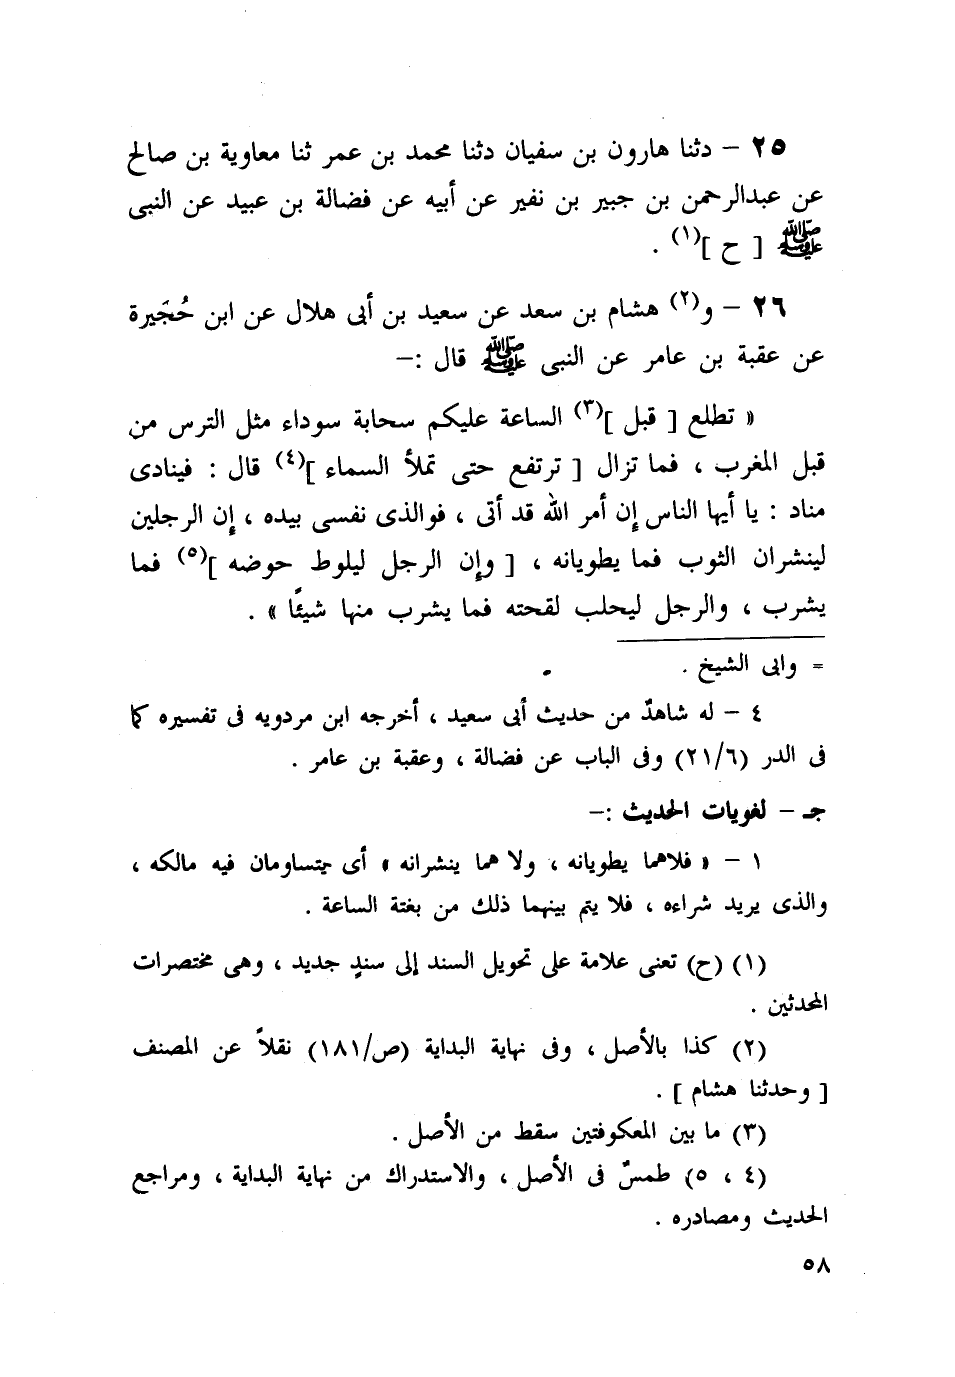 ٢٥ – دثنا هارون بن سفيان دثنا محمد بن عمر ثنا معاوية بن صالح
عن عبدالرحمن بن جبير بن نفير عن أبيه عن فضالة بن عبيد عن النبى
ﷺ [ ح ](١) .
٢٦ – و(٢) هشام بن سعد عن سعيد بن أبى هلال عن ابن حُجَيرة
عن عقبة بن عامر عن النبى ﷺ قال :–
« تطلع [ قبل ](٣) الساعة عليكم سحابة سوداء مثل الترس من
قبل المغرب ، فما تزال [ ترتفع حتى تملأ السماء ](٤) قال : فينادى
مناد : يا أيها الناس إن أمر الله قد أتى ، فوالذى نفسى بيده ، إن الرجلين
لينشران الثوب فما يطويانه ، [ وإن الرجل ليلوط حوضه ](٥) فما
يشرب ، والرجل ليحلب لقحته فما يشرب منها شيئًا » .
= وابى الشيخ .
٤ – له شاهدٌ من حديث أبى سعيد ، أخرجه ابن مردويه فى تفسيره كما
فى الدر (٢١/٦) وفى الباب عن فضالة ، وعقبة بن عامر .
جـ – لغويات الحديث :–
١ – « فلاهما يطويانه ، ولا هما ينشرانه » أى يتساومان فيه مالكه ،
والذى يريد شراءه ، فلا يتم بينهما ذلك من بغتة الساعة .
(١) (ح) تعنى علامة على تحويل السند إلى سندٍ جديد ، وهى مختصرات
المحدثين .
(٢) كذا بالأصل ، وفى نهاية البداية (ص/١٨١) نقلاً عن المصنف
[ وحدثنا هشام ] .
(٣) ما بين المعكوفتين سقط من الأصل .
(٤ ، ٥) طمسٌ فى الأصل ، والاستدراك من نهاية البداية ، ومراجع
الحديث ومصادره .
٥٨